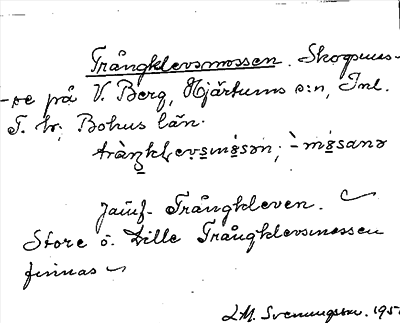 Trångklevsmossen. Skogsmos-
-se på V. Berg, Hjärtums s:n, Inl.
T. hd; Bohus län.
tràŋklevsmɷ̀sən; -mɷ̀sanə
Jämf. Trångkleven.
Store o. Lille Trångklevsmossen
finnas